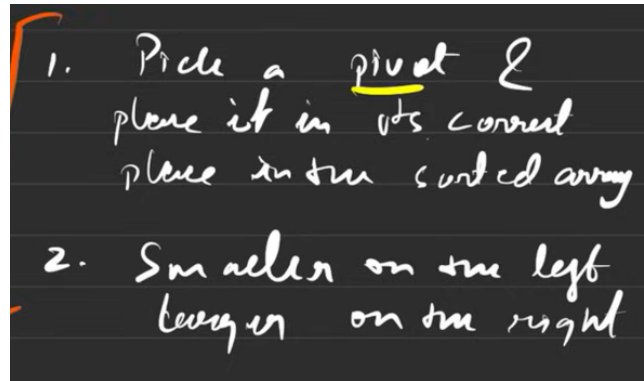 1. Pick a pivot &
place it in its correct
place in the sorted array
2. Smaller on the left
larger on the right